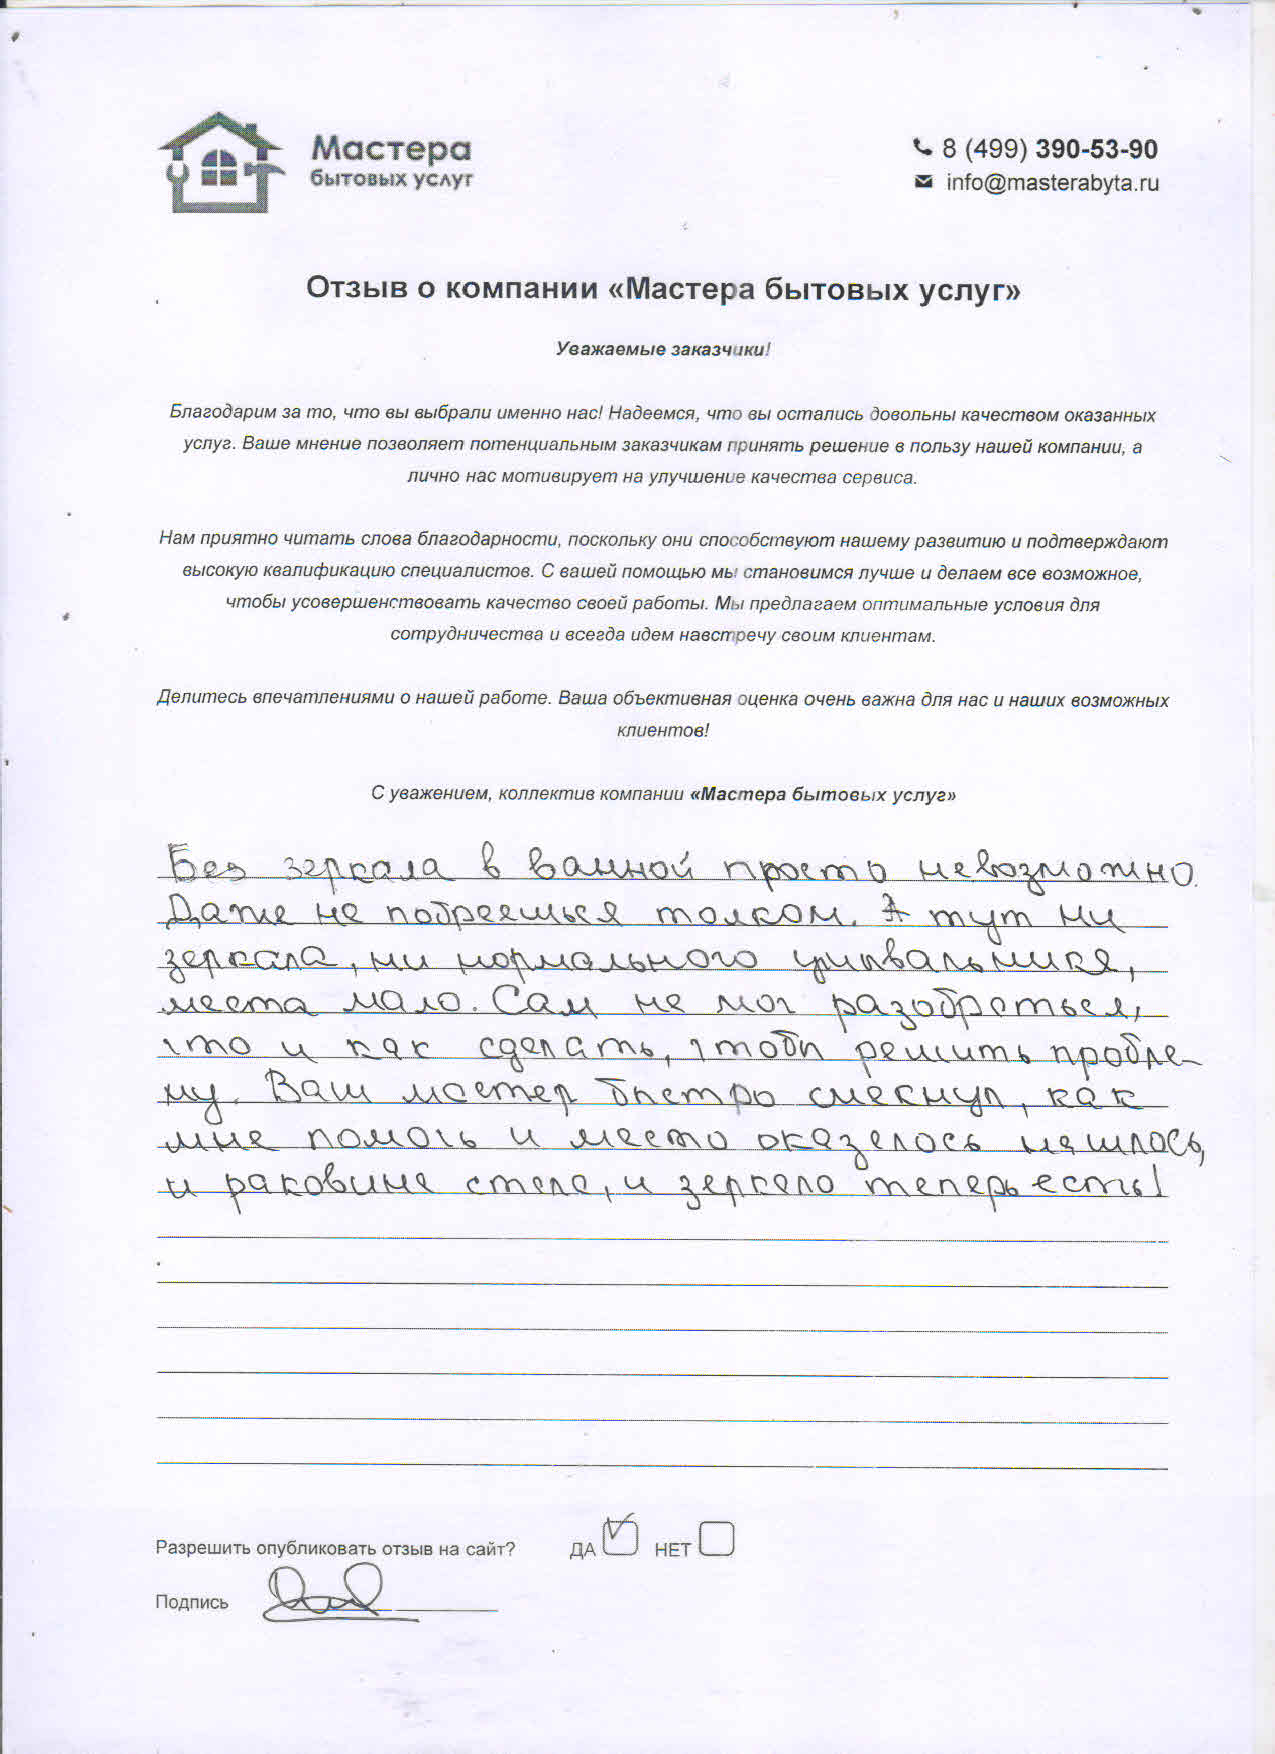 Мастера
бытовых услуг
8 (499) 390-53-90
info@masterabyta.ru
Отзыв о компании «Мастера бытовых услуг»
Уважаемые заказчики!
Благодарим за то, что вы выбрали именно нас! Надеемся, что вы остались довольны качеством оказанных
услуг. Ваше мнение позволяет потенциальным заказчикам принять решение в пользу нашей компании, а
лично нас мотивирует на улучшение качества сервиса.
Нам приятно читать слова благодарности, поскольку они способствуют нашему развитию и подтверждают
высокую квалификацию специалистов. С вашей помощью мы становимся лучше и делаем все возможное,
чтобы усовершенствовать качество своей работы. Мы предлагаем оптимальные условия для
сотрудничества и всегда идем навстречу своим клиентам.
Делитесь впечатлениями о нашей работе. Ваша объективная оценка очень важна для нас и наших возможных
клиентов!
С уважением, коллектив компании «Мастера бытовых услуг»
Без зеркала в ванной просто невозможно.
Даже не побреешься толком. А тут ни
зеркала, ни нормального умывальника,
места мало. Сам не мог разобраться,
что и как сделать, чтобы решить пробле-
му. Ваш мастер быстро смекнул, как
мне помочь и место оказалось нашлось,
и раковина стала, и зеркало теперь есть!
Разрешить опубликовать отзыв на сайт? ДА НЕТ
Подпись